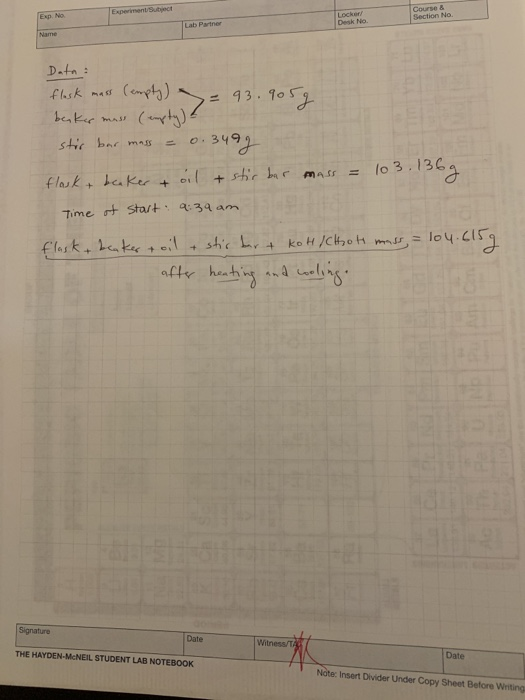 Exp. No.
Experiment/Subject
Locker/
Desk No.
Course &
Section No.
Name
Lab Partner
Data :
flask mass (empty)
= 93.905g
beaker mass (empty)
stir bar mass = 0.349g
flask + beaker + oil + stir bar mass = 103.136g
Time of start : 9:39 am
flask + beaker + oil + stir bar + KOH/CH3OH mass = 104.615g
after heating and cooling.
Signature
Date
Witness/TA
Date
THE HAYDEN-McNEIL STUDENT LAB NOTEBOOK
Note: Insert Divider Under Copy Sheet Before Writing